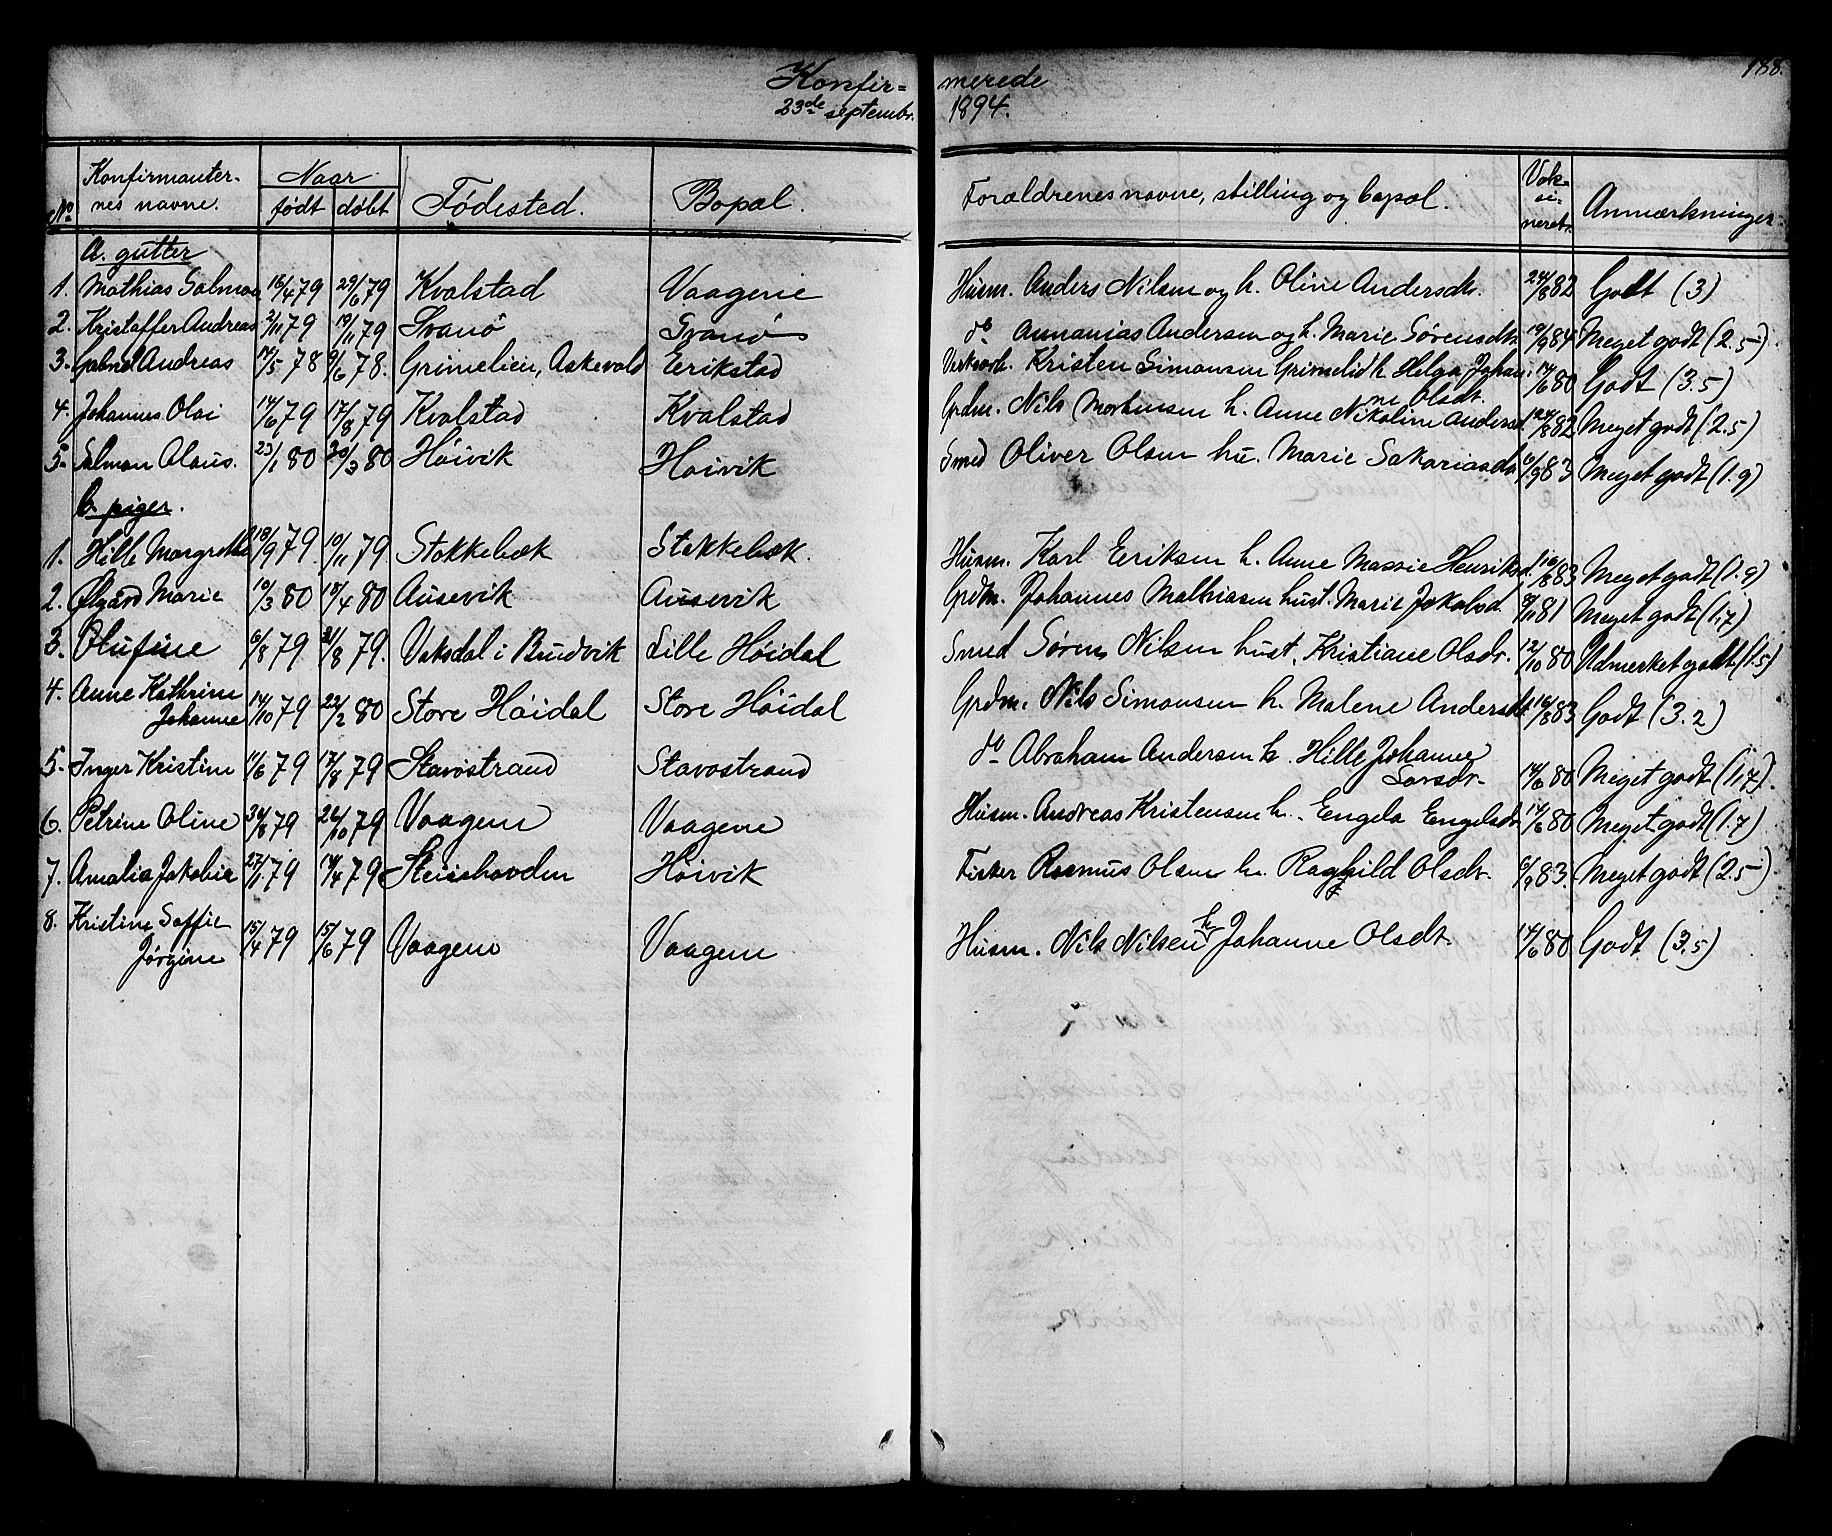 188.
Konfirmerede
23de septembr. 1894.
No Konfirmanternes navne. Naar født døbt Fødested. Bopæl. Forældrenes navne, stilling og bopæl. Vaksineret. Anmærkninger.
A. gutter
1. Mathias Salmon 16/4 79 29/6 79 Kvalstad Vaagene Husm. Anders Nilsen og h. Oline Andersdtr. 24/8 82 Godt (3)
2. Kristoffer Andreas 2/11 79 19/11 79 Svanö Svanö do Annanias Andersen og h. Marie Sørensdtr. 19/9 84 Meget godt (2.5)
3. Gabriel Andreas 17/5 78 9/6 78. Grimelien, Askevold Eerikstad Kristen Simonsen Grimelid h Helga Johanne Olsdt. 14/6 80 Godt (3.5)
4. Johannes Olai 14/6 79 17/8 79 Kvalstad Kvalstad Grdm. Nils Mortensen h. Anne Nikoline Andersd. 24/8 82 Meget godt (2.5)
5. Salmon Olaus. 23/1 80 30/3 80 Höivik Höivik Smed Oliver Olsen hu. Marie Sakariasdr. 6/9 83 Meget godt (1.9)
b. piger.
1. Hille Margrethe 18/9 79. 10/11 79 Stokkebæk Stokkebæk. Husm. Karl Eeriksen h. Anne Massie Henriksd. 16/8 83 Meget godt (1.9)
2. Ølgård Marie 10/3 80 18/4 80 Ausevik Ausevik Grdm. Johannes Mathiasen hust. Marie Jakobsd. 8/11 81 Meget godt (1,7)
3. Olufine 6/8 79 31/8 79. Vaksdal i Brudvik Lille Höidal Smed Sören Nilsen hust. Kristiane Olsdr. 12/10 80 Udmerket godt (1.5)
4. Anne Kathrine Johanne 14/10 79 22/2 80 Store Höidal Store Höidal Grdm. Nils Simonsen h. Malene Andersdt. 16/8 83 Godt (3.2)
5. Inger Kristine 11/6 79 17/8 79 Stavöstrand Stavostrand do Abraham Andersen h. Hille Johanne Larsdr. 14/6 80 Meget godt (1,7).
6. Petrine Oline 30/8 79 26/10 79 Vaagene Vaagene Husm. Andreas Kristensen h. Engela Engelsdr. 14/6 80 Meget godt (1.7)
7. Amalia Jakobie 27/1 79 14/4 79 Steinhovden Höivik Fisker Rasmus Olsen h. Raghild Olsdr. 6/9 83. Meget godt (2.5)
8. Kristine Soffie Jørgine 15/4 79 15/6 79 Vaagene Vaagene Husm. Nils Nilsen h. Johanne Olsdt. 14/6 80 Godt (3,5)